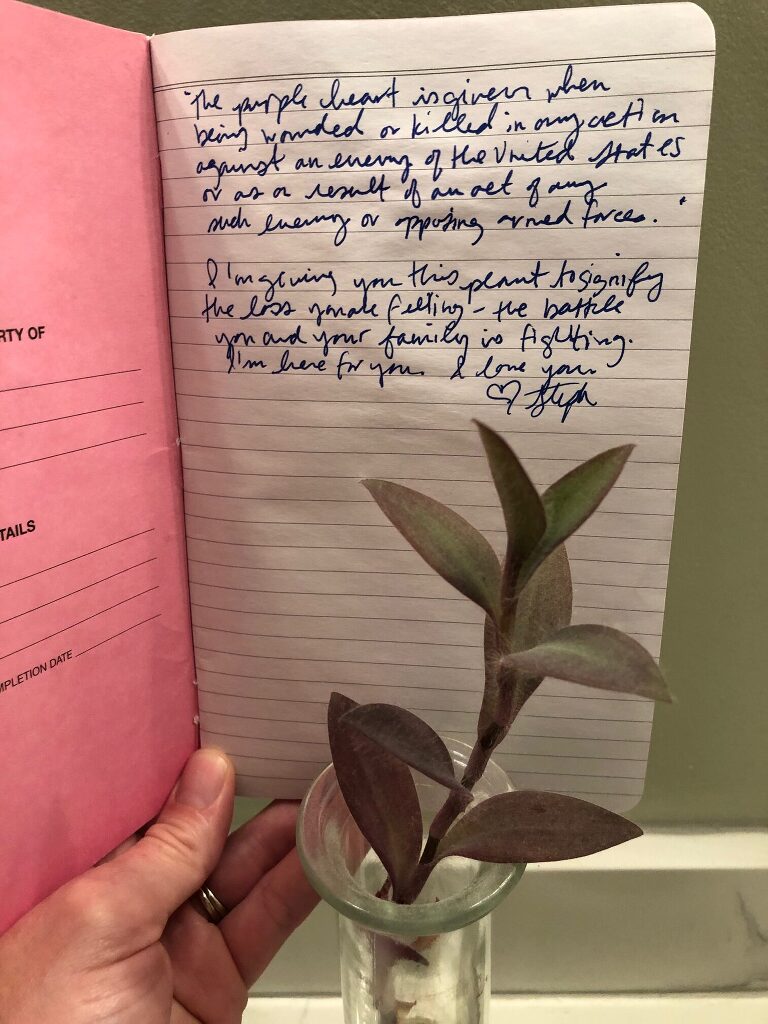 RTY OF
TAILS
MPLETION DATE
"The purple heart is given when
being wounded or killed in any action
against an enemy of the United States
or as a result of an act of any
such enemy or opposing armed forces."
I'm giving you this plant to signify
the loss you are feeling - the battle
you and your family is fighting.
I'm here for you. I love you.
♡ Steph